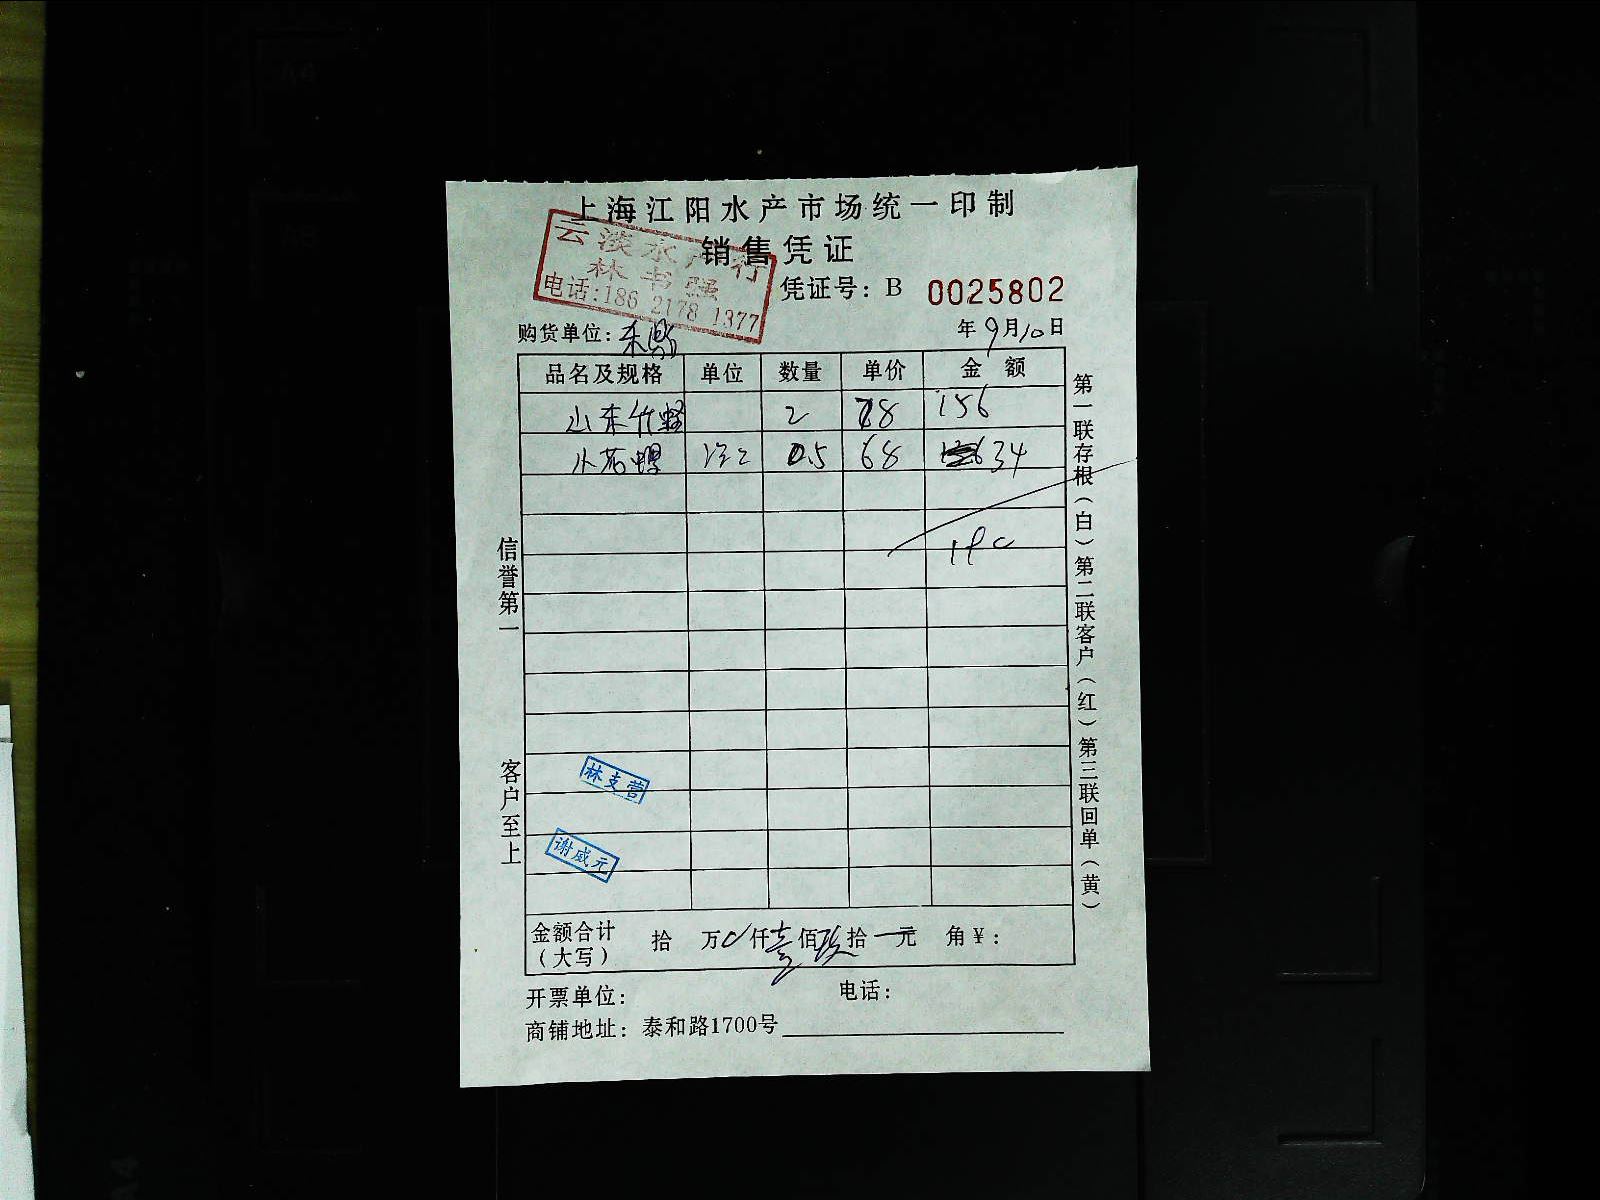 上海江阳水产市场统一印制
销售凭证
云淡水产行
林书强
电话:186 2178 1377
凭证号: B 0025802
购货单位:
年9月10日
品名及规格 单位 数量 单价 金额
山东竹蛏 2 78 156
小花螺 0.5 68 34
190
信誉第一
客户至上
林支营
谢威元
第一联存根(白)第二联客户(红)第三联回单(黄)
金额合计 拾 万 仟壹佰玖拾 元 角¥:
(大写)
开票单位: 电话:
商铺地址: 泰和路1700号